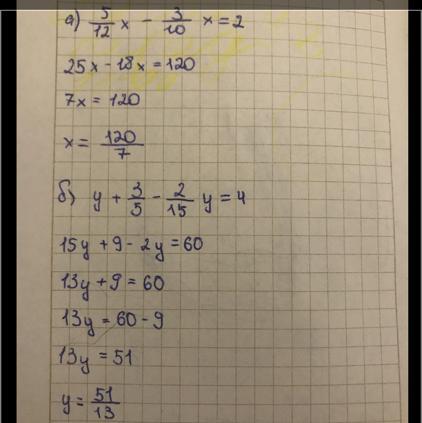 а) 5/12 x - 3/10 x = 2
25x - 18x = 120
7x = 120
x = 120/7
б) y + 3/5 - 2/15 y = 4
15y + 9 - 2y = 60
13y + 9 = 60
13y = 60 - 9
13y = 51
y = 51/13